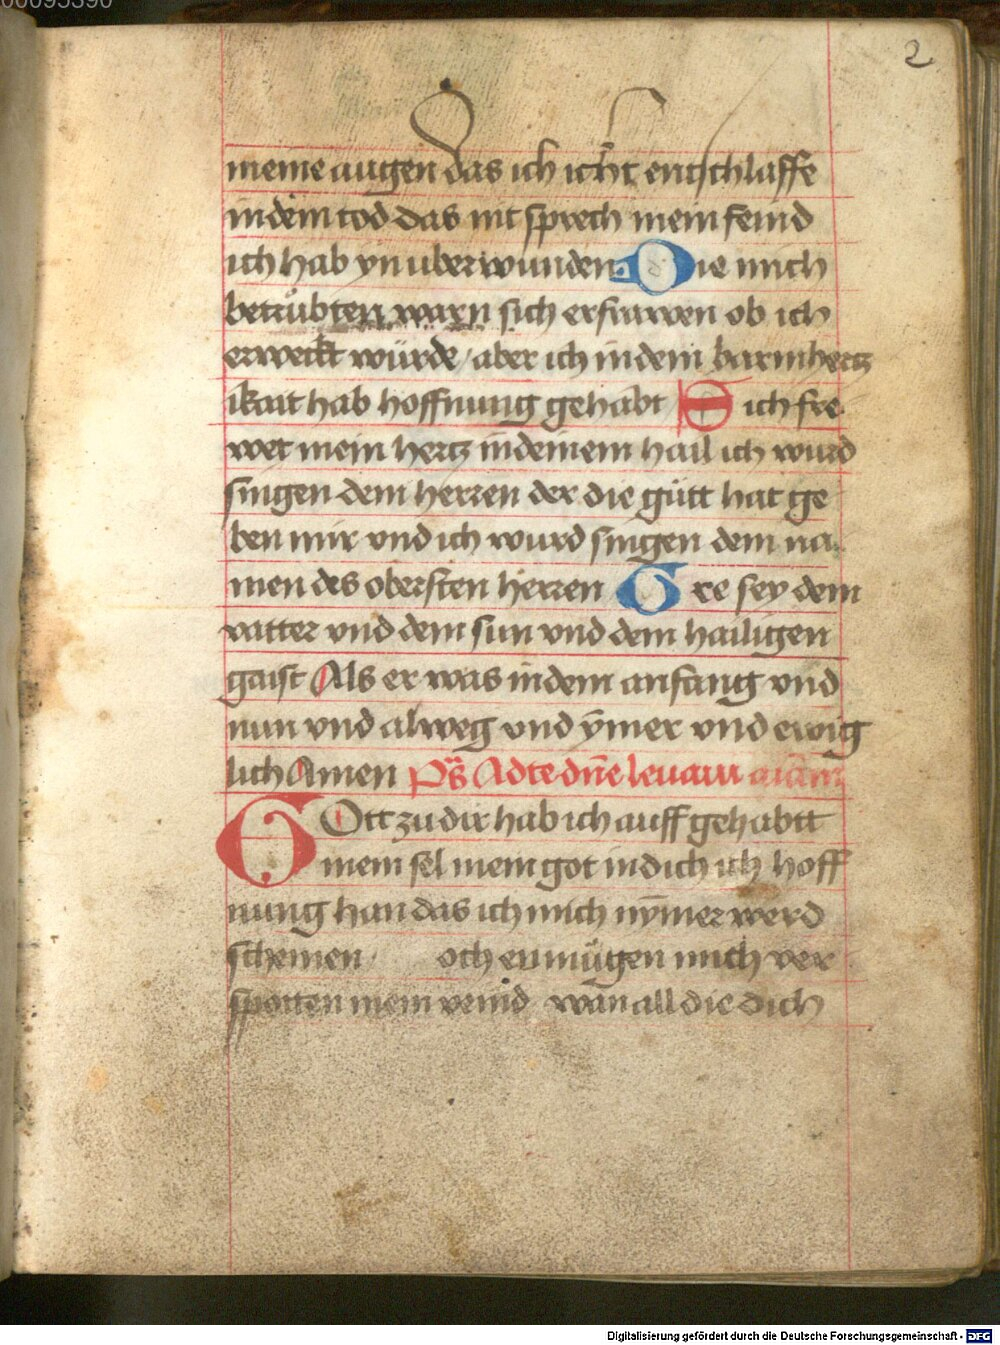 00095390
2
meine augen das ich icht entschlaffe
in dem tod das nit sprech mein feind
ich hab yn uberwunden Die mich
betrübten warn sich erfrawen ob ich
erweckt würde / aber ich in dem barmhertz
ikait hab hoffnung gehabt Sich fre
wet mein hertz in deinem hail ich wurd
singen dem herren der die gütt hat ge
ben mir vnd ich wurd singen dem na
men des obersten herren Ere sey dem
vatter vnd dem sun vnd dem hailigen
gaist Als er was in dem anfang vnd
nun vnd alweg vnd ÿmer vnd ewig
lich Amen Ps Ad te dn̄e leuaui
GOtt zu dir hab ich auff gehabtt
mein sel mein got in dich ich hoff
nung han das ich mich nÿmer werd
schemen och en mügen mich ver
spotten mein veind wan all die dich
Digitalisierung gefördert durch die Deutsche Forschungsgemeinschaft - DFG